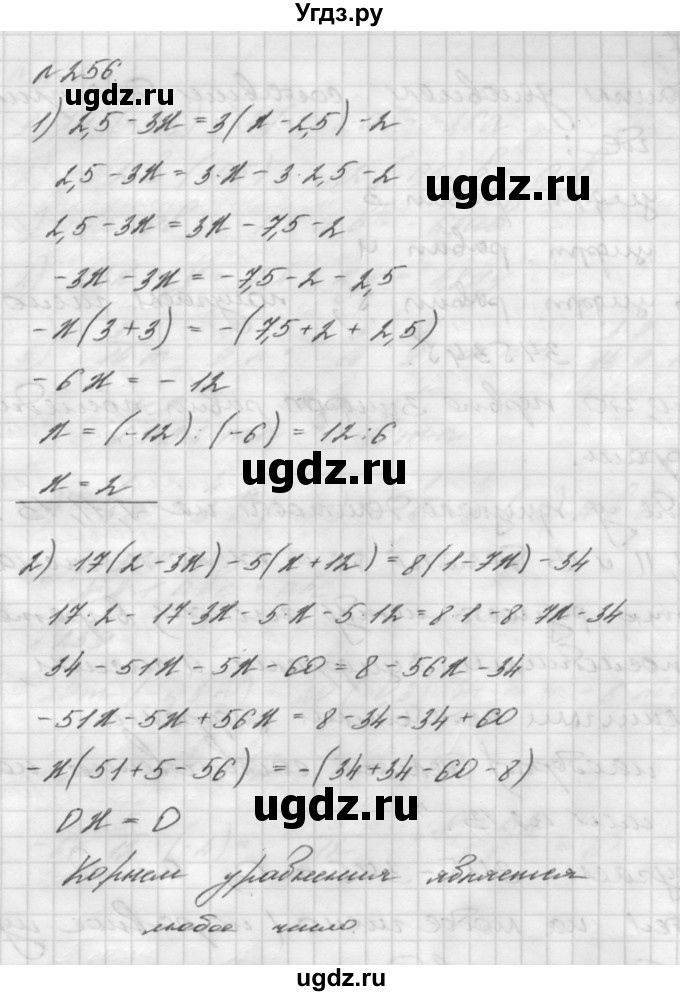 Угдз.ру
№256
ugdz.ru
1) 2,5 - 3x = 3(x - 2,5) - 2
2,5 - 3x = 3·x - 3·2,5 - 2
ugdz.ru
2,5 - 3x = 3x - 7,5 - 2
-3x - 3x = -7,5 - 2 - 2,5
-x(3+3) = -(7,5+2+2,5)
-6x = -12
x = (-12):(-6) = 12:6
ugdz.ru
x = 2
2) 17(2 - 3x) - 5(x+12) = 8(1-7x) - 34
17·2 - 17·3x - 5·x - 5·12 = 8·1 - 8·7x - 34
ugdz.ru
34 - 51x - 5x - 60 = 8 - 56x - 34
-51x - 5x + 56x = 8 - 34 - 34 + 60
-x(51+5-56) = -(34+34-60-8)
0x = 0
ugdz.ru
Корнем уравнения является
любое число
ugdz.ru